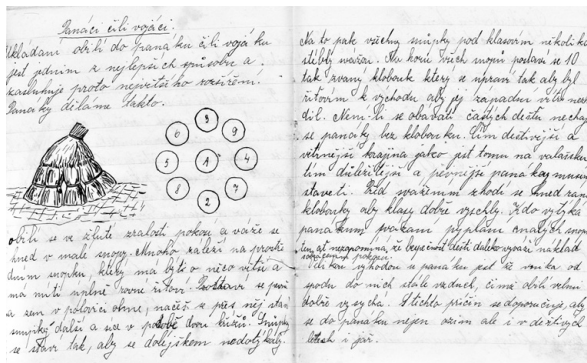 Panáci čili vojáci.
Ukládání obilí do panáků čili vojáků
jest jedním z nejlepších způsobů a
zasluhuje proto největšího rozšíření.
Panáky děláme takto.
3
6
9
5
1
4
8
7
2
obilí se ve žluté zralosti pokosí a váže se
hned v malé snopy. Mnoho záleží na prostře
dním snopku, který má býti o něco větší a
má míti úplně rovné řitoví. Postaví se
a zem v polovici ohne, načež se přes něj staví
snopky další a sice v podobě dvou křížů. Snopky
se staví tak, aby se dolejškem nedotýkaly.
Na to pak všechny snopky pod klasovím několika
stébly svážou. Na konec všech snopů postaví se 10
tak zvaný klobouk který se upraví tak aby byl
řitovím k východu aby jej západní vítr nesho
dil. Není-li se obávati častých dešťů nechají
se panáky bez klobouku. Čím deštivější a
větrnější krajina jako jest tomu na valašsku
tím důležitější a pevnější panáky musíme
stavěti. Před svážením shodí se hned ráno
klobouky aby klasy dobře vyschly. Kdo vytýká
panákům pracnost
ten ať nezapomíná, že bezpečnost
Velkou výhodou u panáků jest že vniká od
spodu do nich stále vzduch, čímž obilí velmi
dobře vysychá. Z těchto příčin se doporučuje, aby
se do panáků nejen ozim ale i v deštivých
letech i jař.